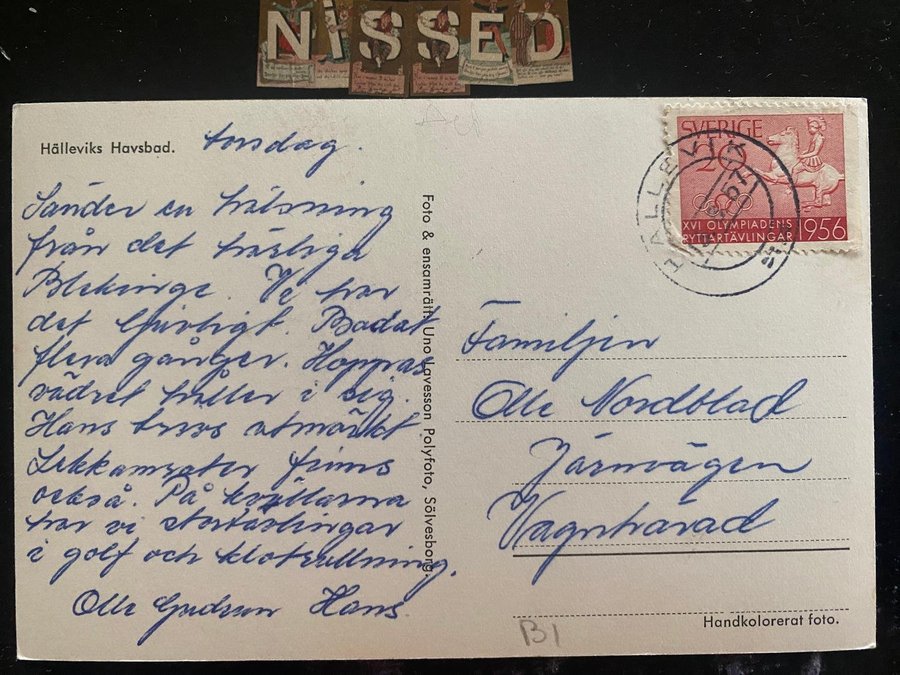 NiSSED
Hälleviks Havsbad. torsdag.
Sänder en hälsning
från det härliga
Blekinge. Vi har
det ljuvligt. Badat
flera gånger. Hoppas
vädret håller i sig.
Hans trivs utmärkt.
Lekkamrater finns
också. På kvällarna
har vi stortävlingar
i golf och klotrullning.
Olle Gudrun Hans.
Foto & ensamrätt: Uno Lavesson Polyfoto, Sölvesborg
SVERIGE
20
XVI OLYMPIADENS
RYTTARTÄVLINGAR 1956
HÄLLEVIK
57
Familjen
Olle Nordblad
Järnvägen
Vagnhärad
Handkolorerat foto.
B1